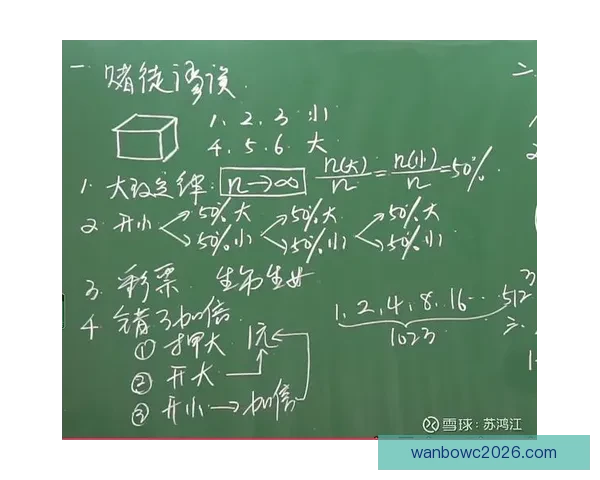 一. 赌徒谬误.
1、2、3 小
4、5、6 大
1. 大数定律 n→∞ n(大)/n = n(小)/n = 50%.
2. 开小 50%大 50%大 50%大
50%小 50%小 50%小
3. 彩票 生男生女
4. 错了加倍.
1、2、4、8、16... 512
1023
① 押大 1元
② 开大
③ 开小 → 加倍
二.
三.
雪球: 苏鸿江
wanbowc2026.com